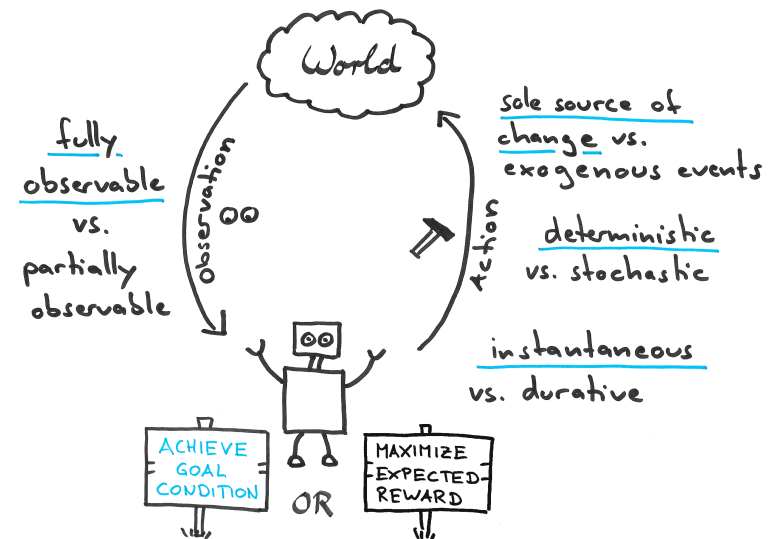 World
fully
observable
vs.
partially
observable
Observation
sole source of
change vs.
exogenous events
deterministic
vs. stochastic
Action
instantaneous
vs. durative
ACHIEVE
GOAL
CONDITION
OR
MAXIMIZE
EXPECTED
REWARD